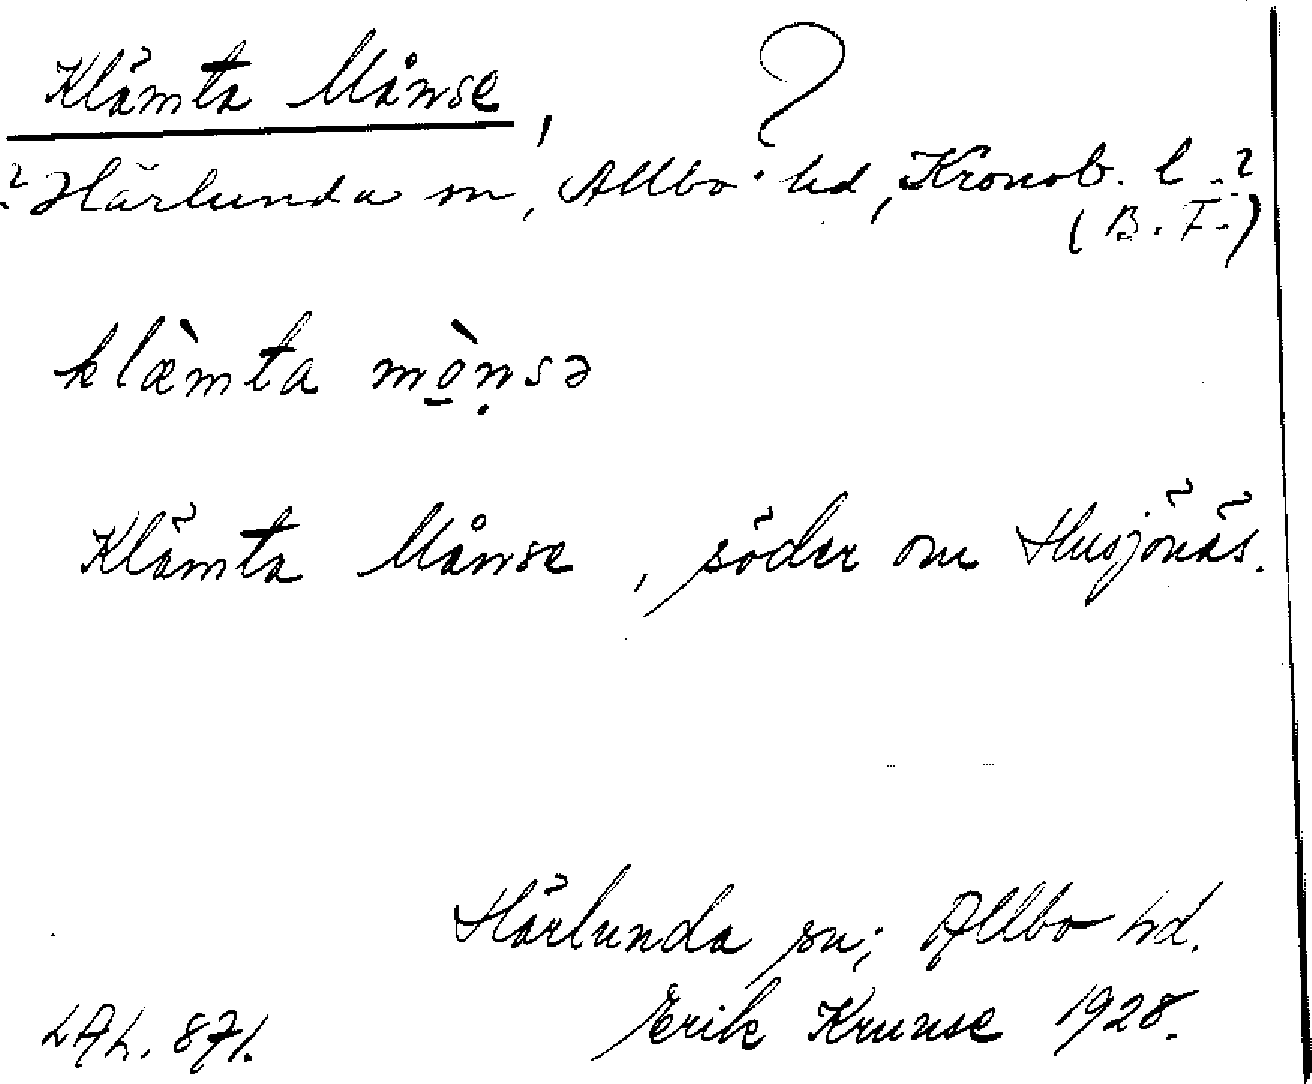 Klämta Månse, ?
? Härlunda sn, Allbo hd, Kronob. l. ?
(B. F.)
klæ̀mta mò̱ṇsə
Klämta Månse, söder om Husjönäs.
Härlunda sn; Allbo hd.
LAL. 871. Erik Krunse 1928.